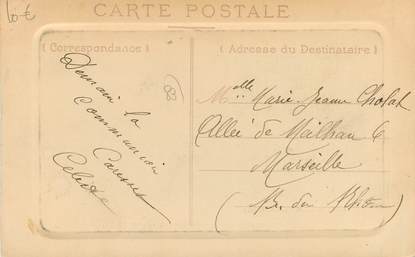 10 €
CARTE POSTALE
( Correspondance )
( Adresse du Destinataire )
83
Demain la
Communion
Caresses
Mlle Marie Jeanne Cholat
Allée de Meilhan 6
Marseille
(B. du Rhône)